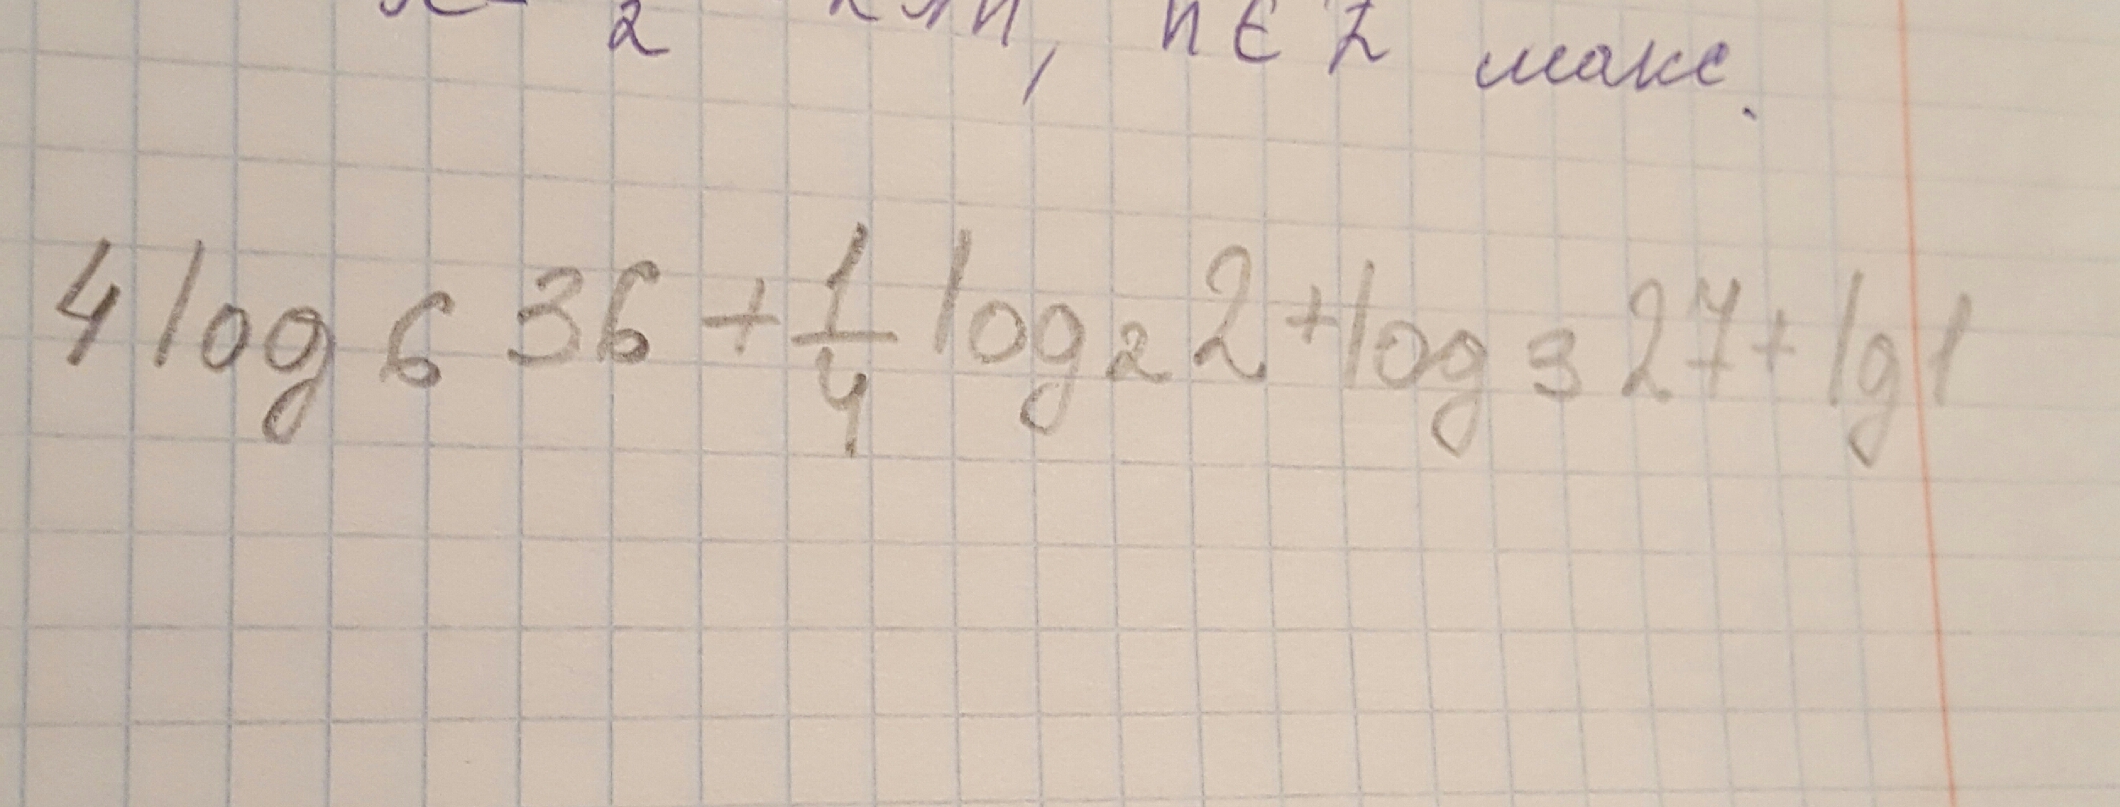 2 n, n ∈ Z макс.
4 log₆ 36 + 1/4 log₂ 2 + log₃ 27 + lg 1